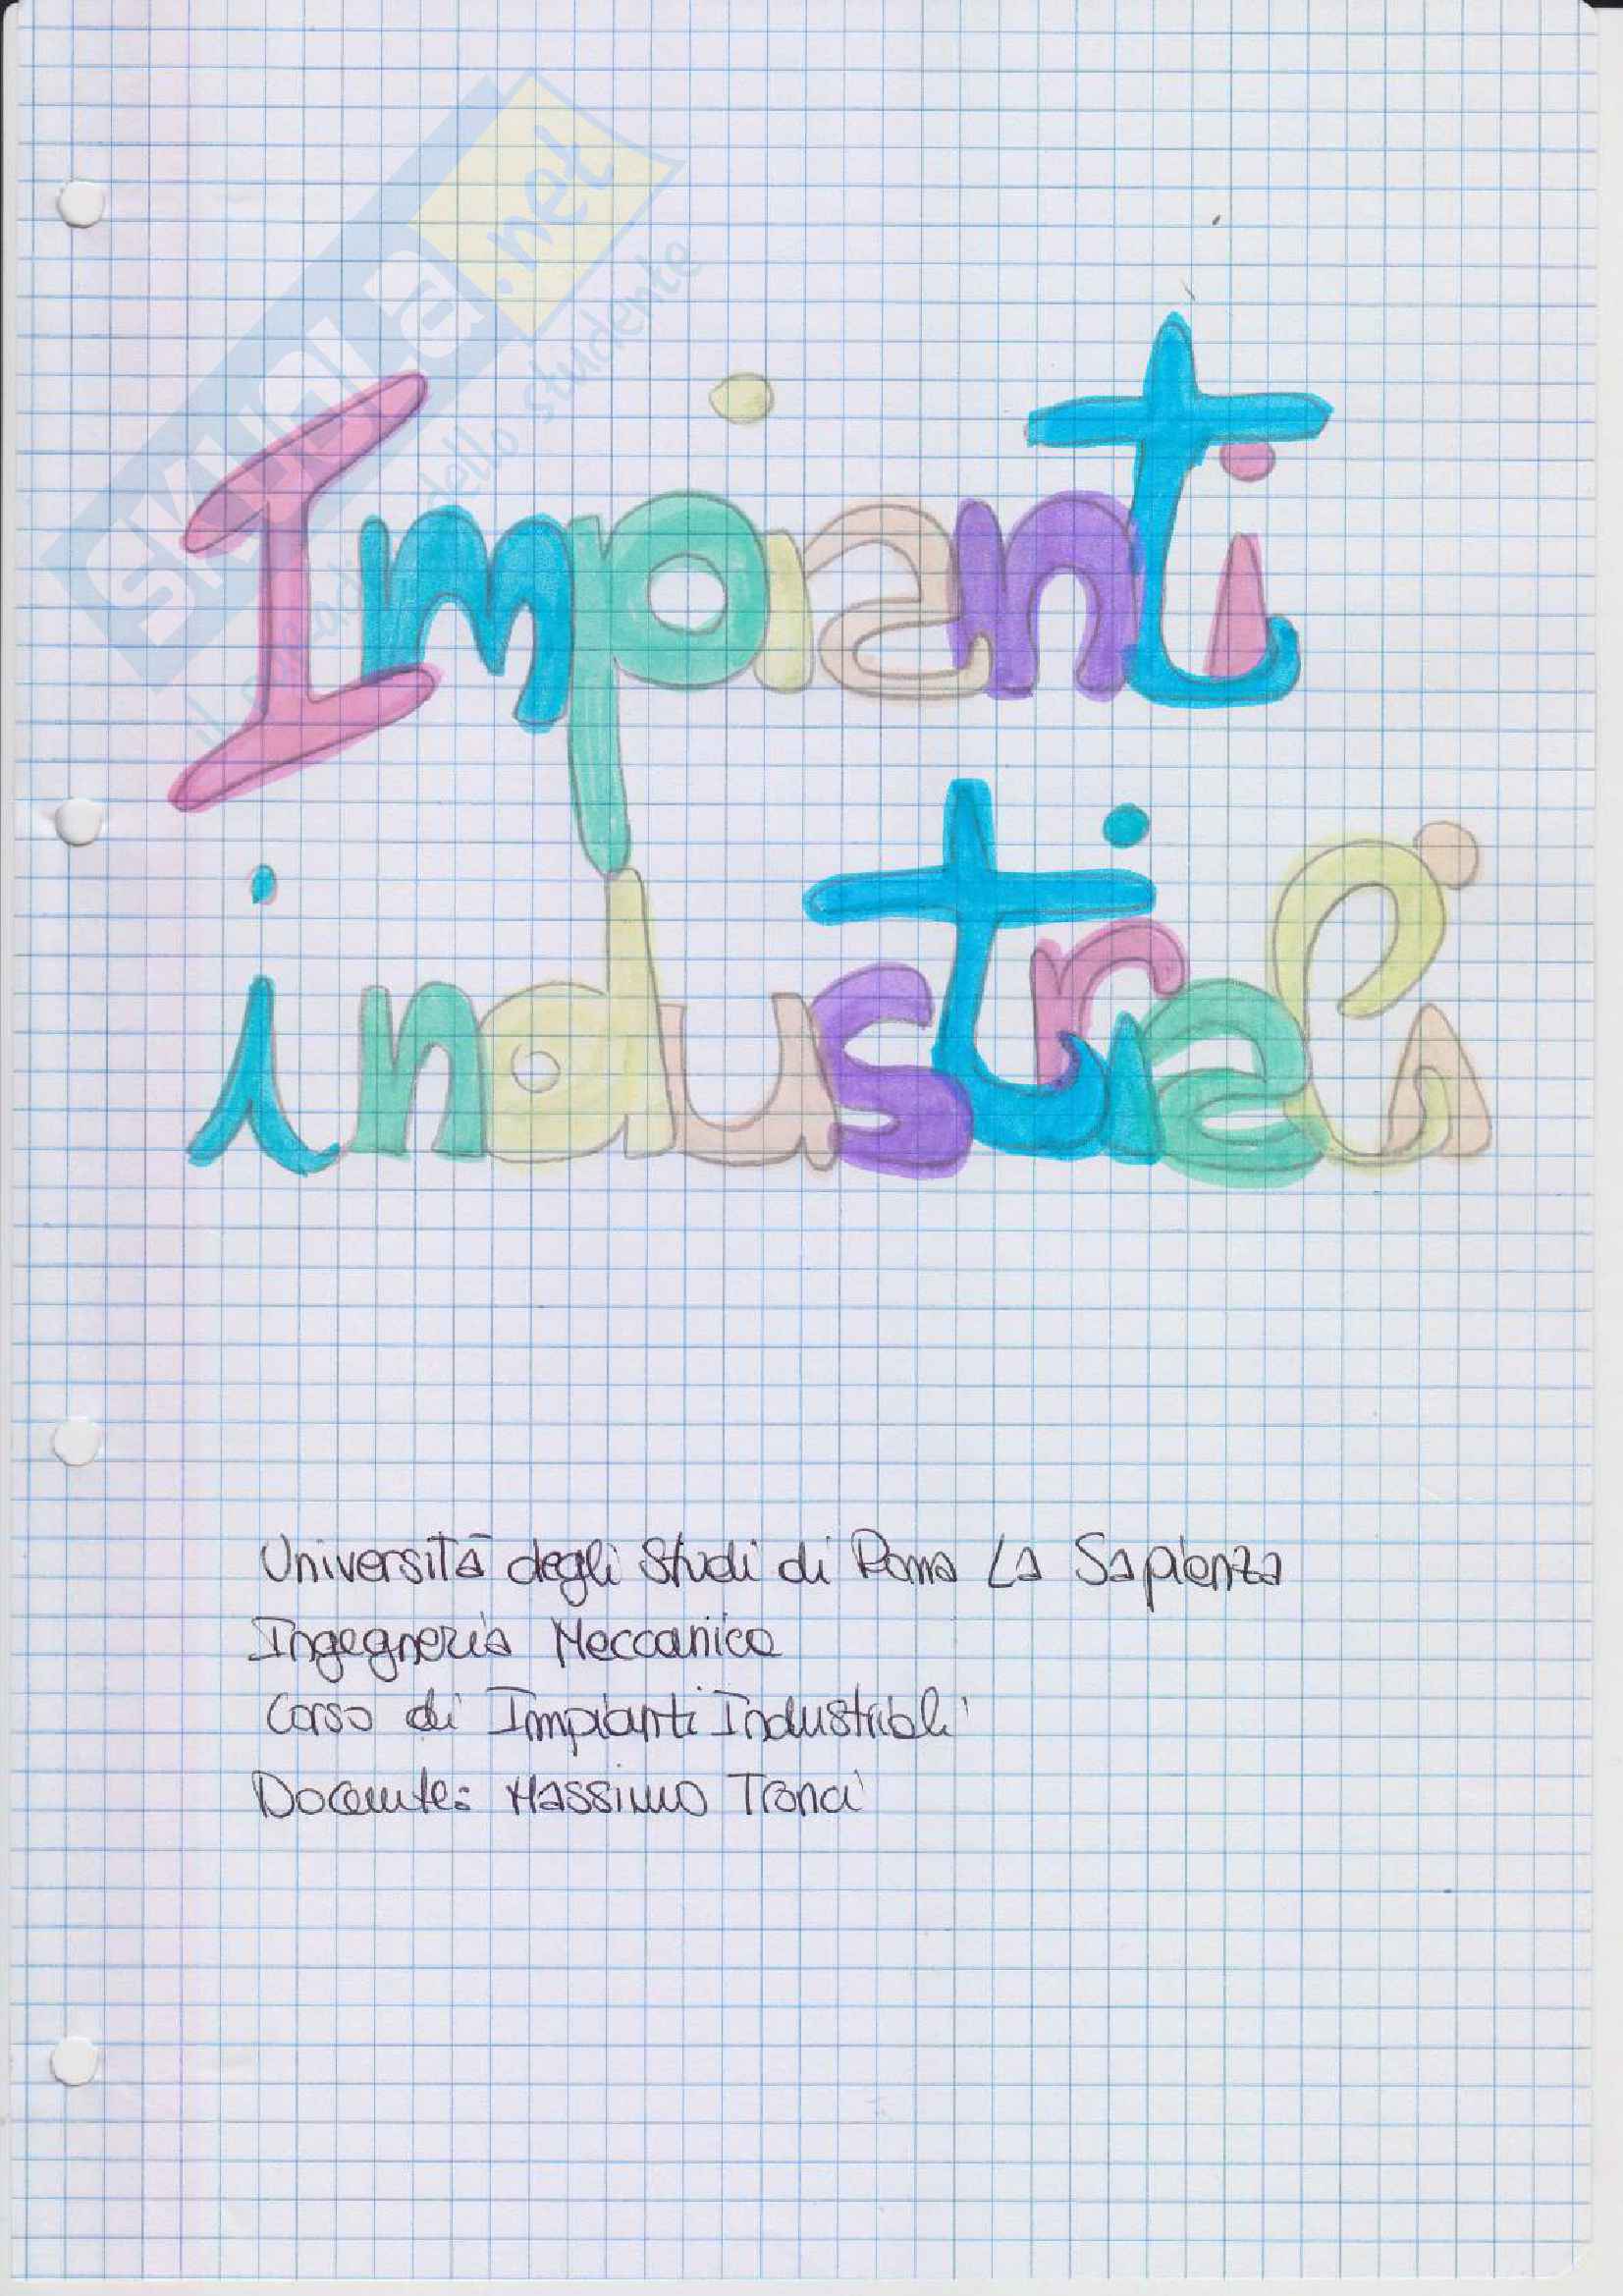 SKUOLA.net
il paradiso dello studente
Impianti
industriali
Università degli Studi di Roma La Sapienza
Ingegneria Meccanica
Corso di Impianti Industriali
Docente: Massimo Tronci